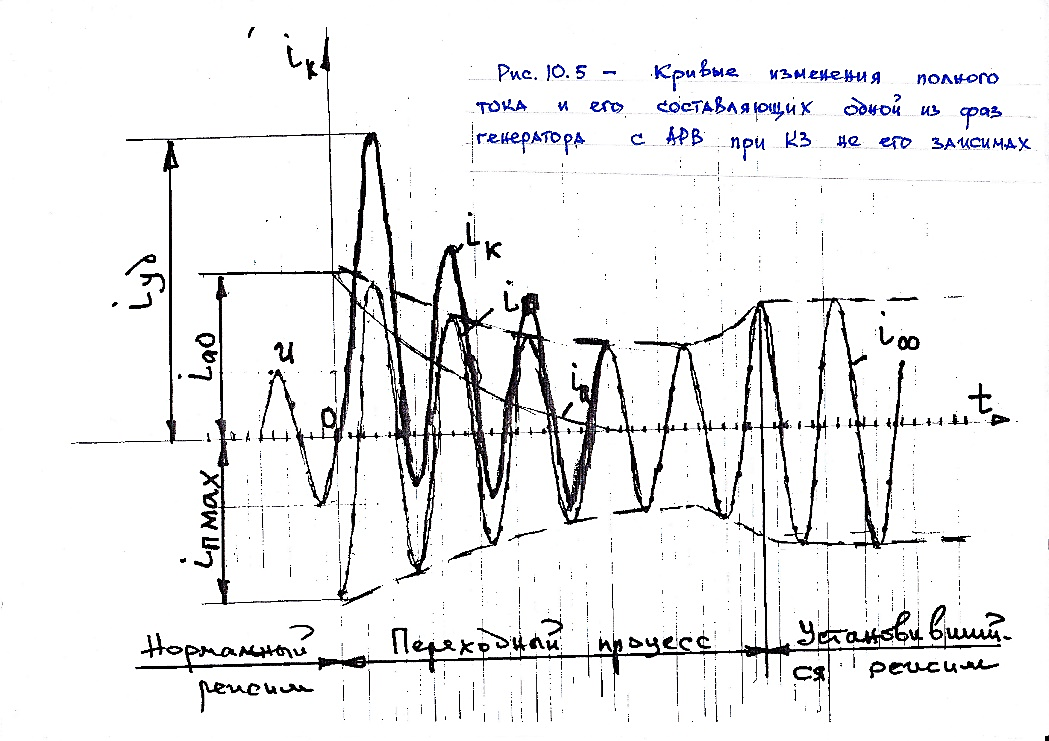 iк
Рис. 10.5 – Кривые изменения полного
тока и его составляющих одной из фаз
генератора с АРВ при КЗ не его зажимах
iк
iп
iуд
iа0
u
iа
i∞
0
t
iпмах
Нормальный
режим
Переходный процесс
Установивший-
ся режим